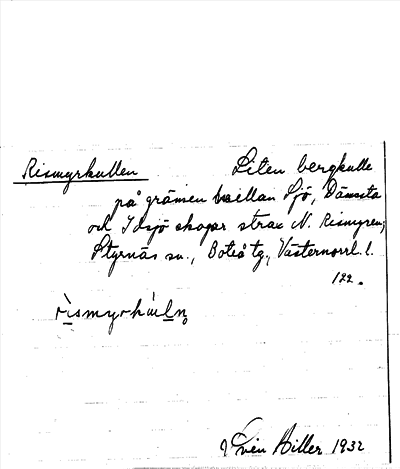 Rismyrkullen Liten bergkulle
på gränsen mellan Sjö, Dämsta
och Idsjö skogar strax N. Rismyren,
Styrnäs sn., Boteå tg., Västernorrl. l.
122.
Sven Hiller 1932